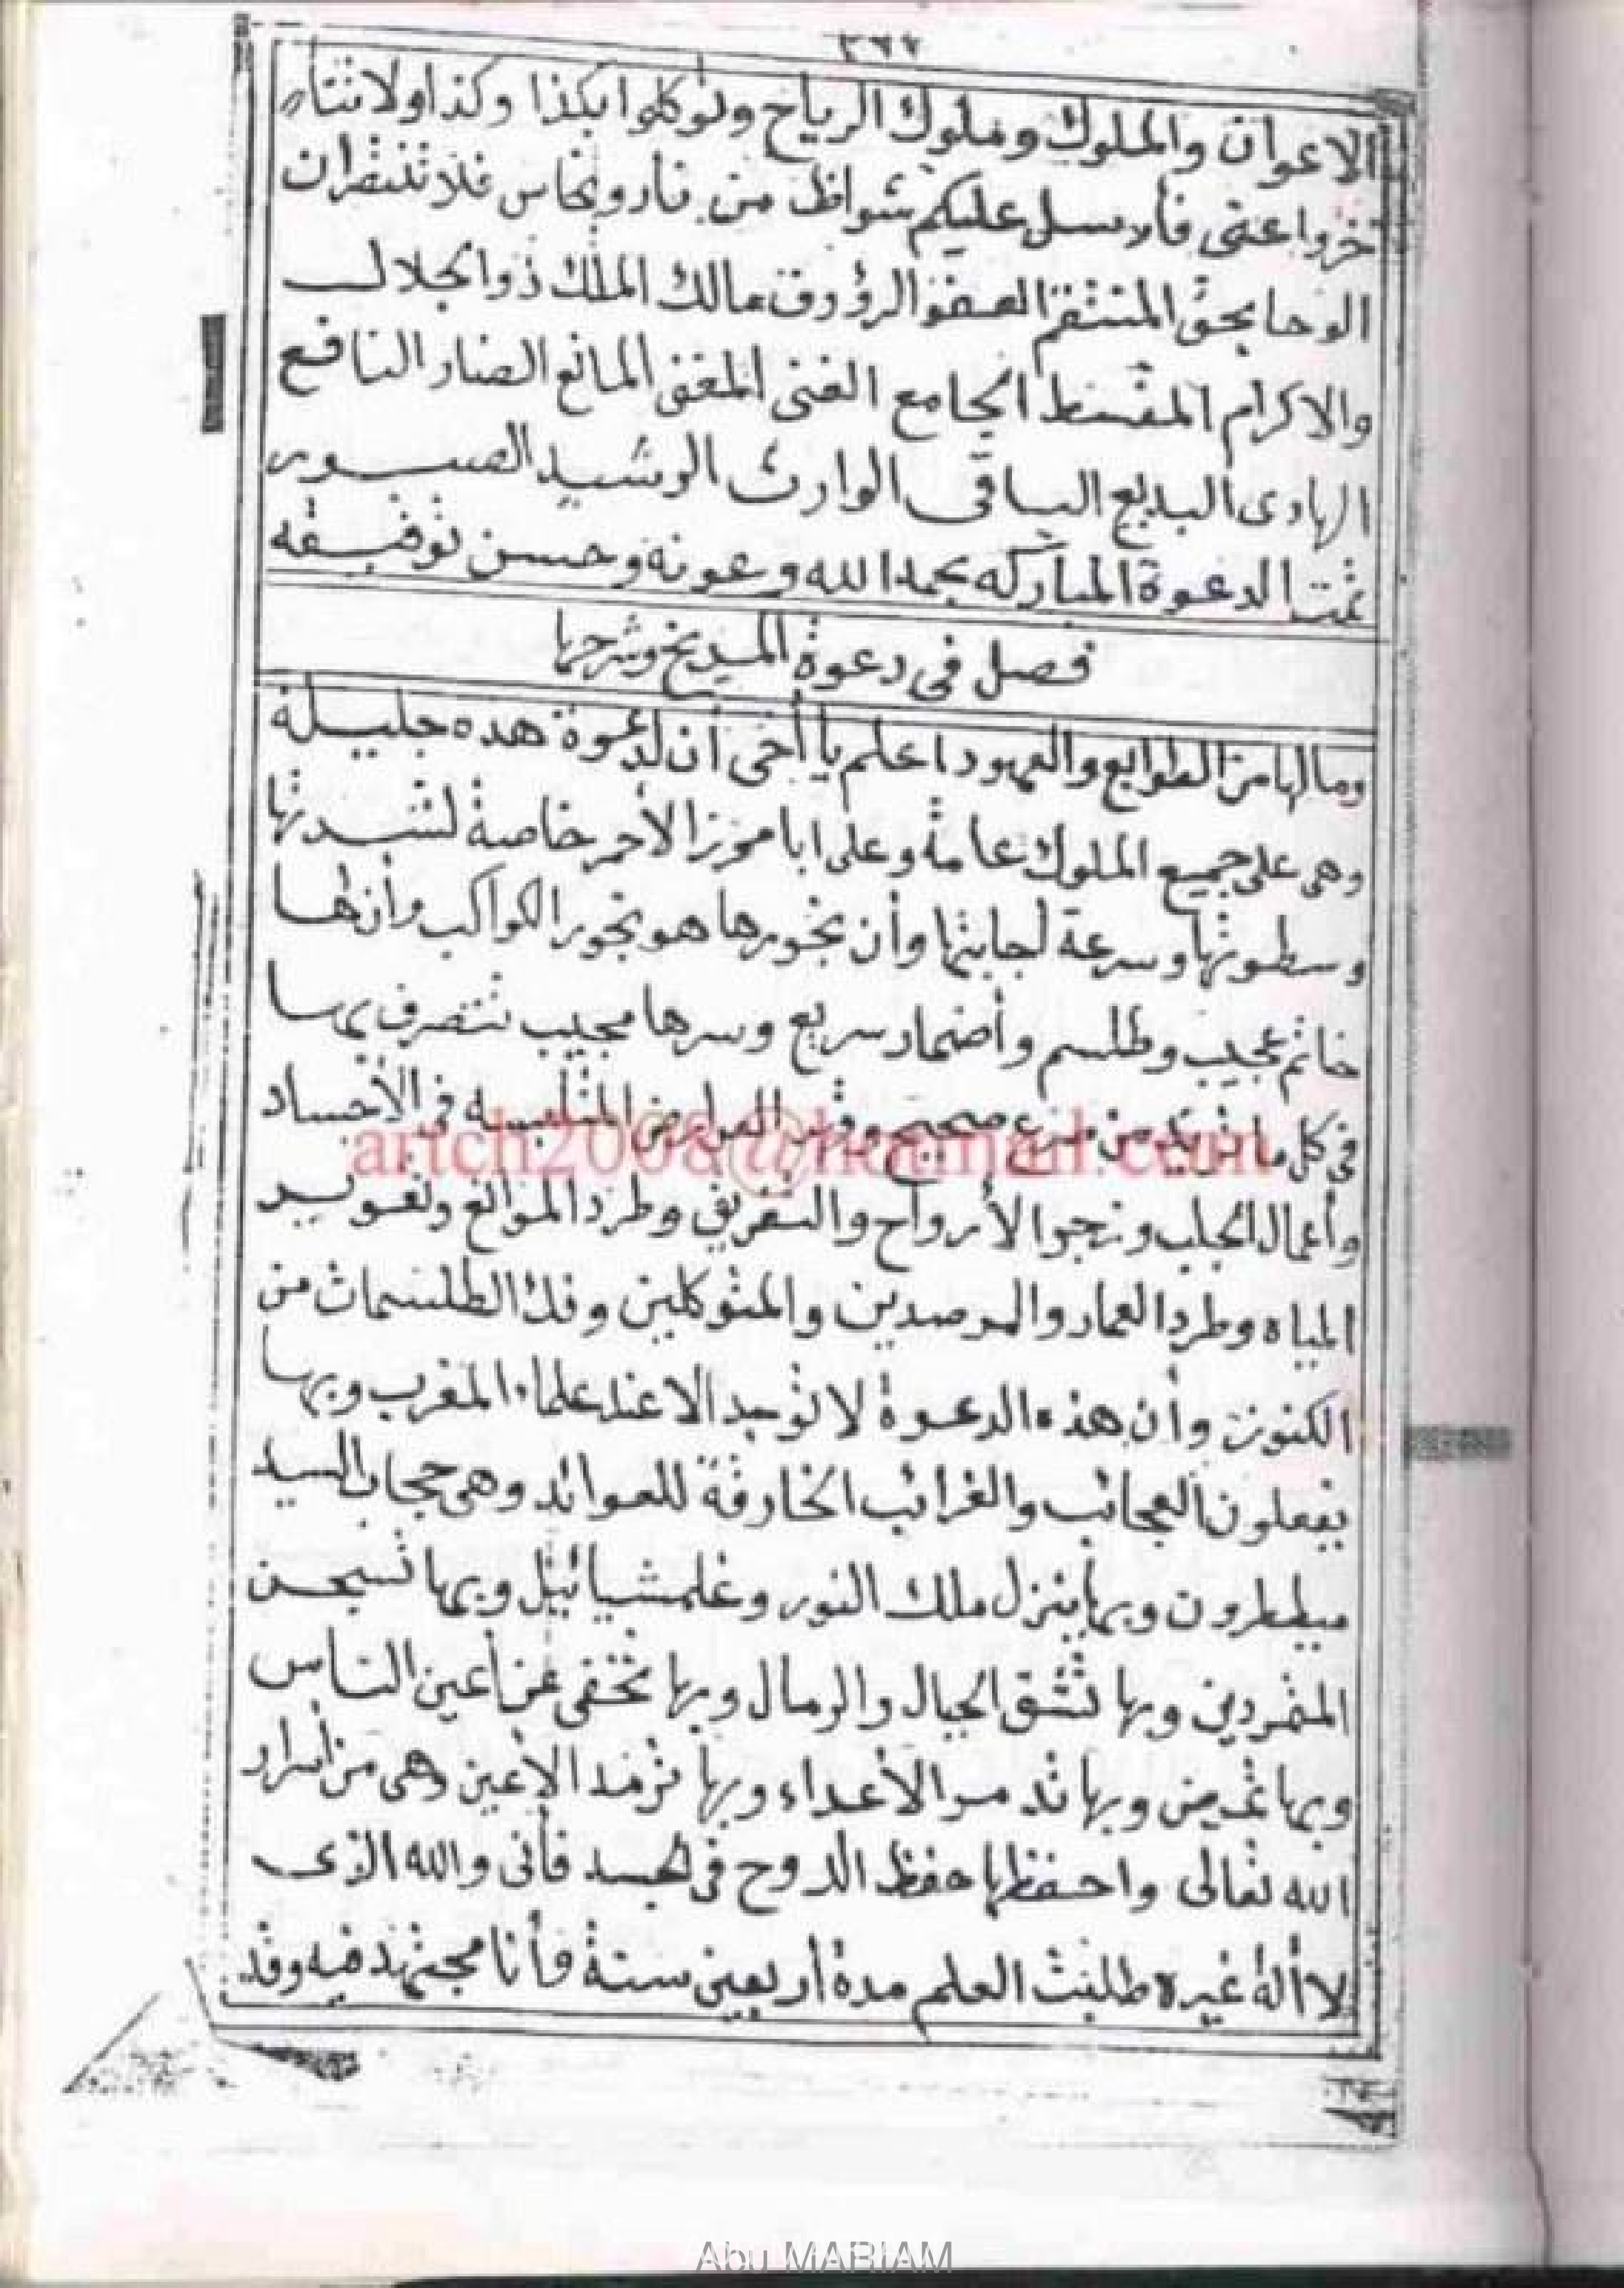 ٣٦٢
الاعوان والملوك وملوك الرياح وتوكلوا بكذا وكذا ولا تتأ
خروا عنى فأرسل عليكم شواظ من نار ونحاس فلا تنتصران
الوحا بحق المنتقم العفو الرؤوف مالك الملك ذو الجلال
والاكرام المقسط الجامع الغنى المغنى المانع الضار النافع
الهادى البديع الباقى الوارث الرشيد الصبور
تمت الدعوة المباركه بحمد الله وعونه وحسن توفيقه
فصل فى دعوة المريخ وشرحها
ومالها من الطوابع والعهود اعلم يا أخى أن لدعوة هذه جليلة
وهى على جميع الملوك عامة وعلى ابا محرز الأحمر خاصة لشدتها
وسطوتها وسرعة لجابتها وأن بخورها هو بخور الكواكب وأن لها
خاتم عجيب وطلسم وأضمار سريع وسرها مجيب تتصرف بها
فى كل ما تريد من صرع صحيح وقهر العوارض المتلبسه فى الأجساد
وأعمال الجلب وزجر الأرواح والتفريق وطرد الموانع وتغوير
المياه وطرد العمار والمرصدين والمتوكلين وفك الطلسمات من
الكنوز وأن هذه الدعوة لا توجد الا عند علماء المغرب وبها
يفعلون العجائب والغرائب الخارقة للعوائد وهى حجاب السيد
ميططرون وبها ينزل ملك النور وغلمشيائيل وبها تسجن
المتمردين وبها تشق الجبال والرمال وبها تخفى عن أعين الناس
وبها تمرض وبها تدمر الأعداء وبها ترمد الأعين وهى من أسرار
الله تعالى واحفظها حفظ الروح فى لجسد فأنى والله الذى
لا أله غيره طلبت العلم مدة أربعين سنة فأنا مجتهد فيه وقد
artch2008@hotmail.com
Abu MARIAM